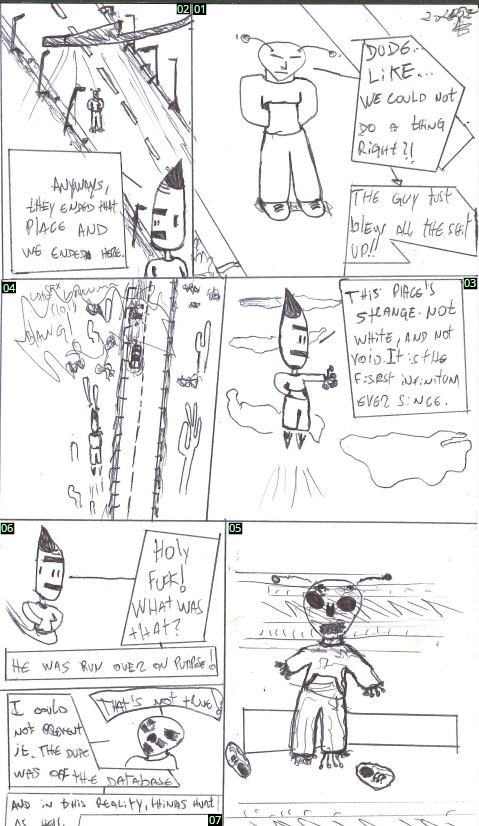 02 01
DUDE...
LIKE...
WE COULD NOT
DO A THING
RIGHT?!
THE GUY JUST
BLEW ALL THE SHIT
UP!!
ANYWAYS,
THEY ENDED THAT
PLACE AND
WE ENDED HERE.
03
THIS PLACE'S
STRANGE. NOT
WHITE, AND NOT
VOID. IT IS THE
INFINITUM
EVER SINCE.
04
BANG!
05
06
HOLY
FUCK!
WHAT WAS
THAT?
HE WAS RUN OVER ON PURPOSE!
THAT'S NOT TRUE!
I COULD
NOT PREVENT
IT. THE DUDE
WAS OFF THE DATABASE.
AND IN THIS REALITY, THINGS HURT
AS HELL.
07